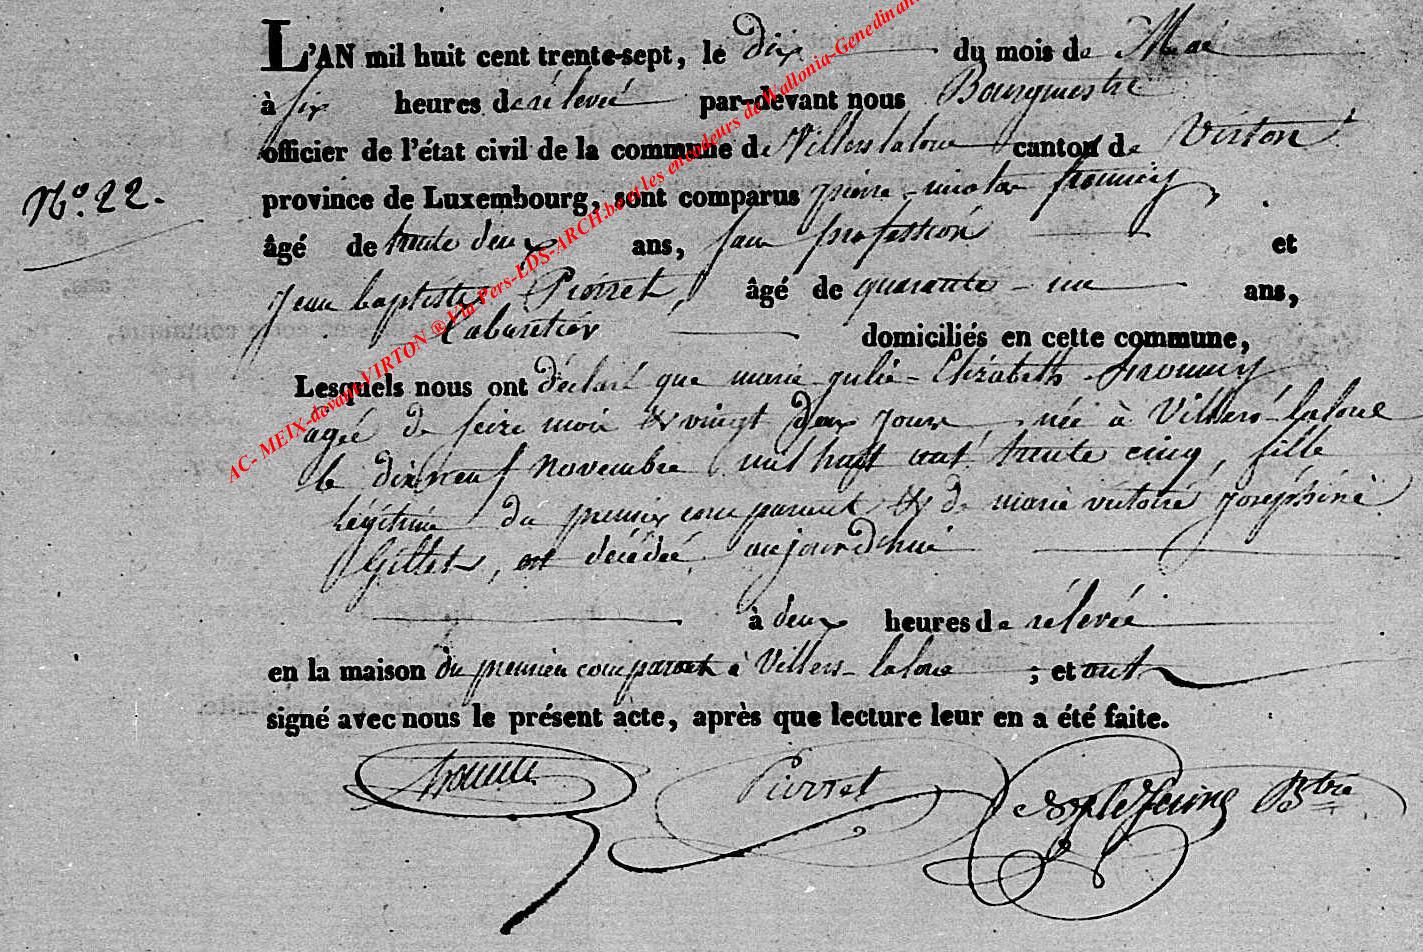 L'AN mil huit cent trente-sept, le dix du mois de Mai
à six heures de rélevée par-devant nous Bourgmestre
officier de l'état civil de la commune de Villers laloue canton de Virton
N.º 22.
province de Luxembourg, sont comparus pierre-nicolas
âgé de trente deux ans, sans profession et
Jean baptiste Pierret, âgé de quarante-un ans,
Cabaretier domiciliés en cette commune,
Lesquels nous ont déclaré que marie-julie-Elizabeth
agée de seize mois & vingt deux jours née à Villers-laloue
le dixneuf Novembre mil huit cent trente cinq, fille
légitime du premier comparant & de marie victoire Joséphine
Gillet, est décédée aujourd'hui
à deux heures de rélevée
en la maison du premier comparant à Villers-laloue ; et ont
signé avec nous le présent acte, après que lecture leur en a été faite.
Pierret Bstre
AC- MEIX-devant-VIRTON ® Via Pers-LDS-ARCH.be et les encodeurs de Wallonia-Genedinant